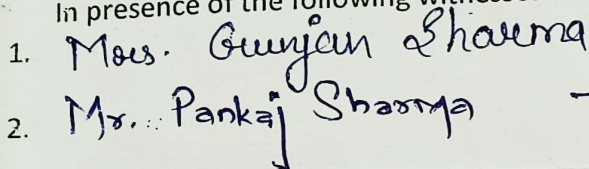 In presence of the following witnesses
1. Mrs. Gunjan Sharma
2. Mr. Pankaj Sharma -